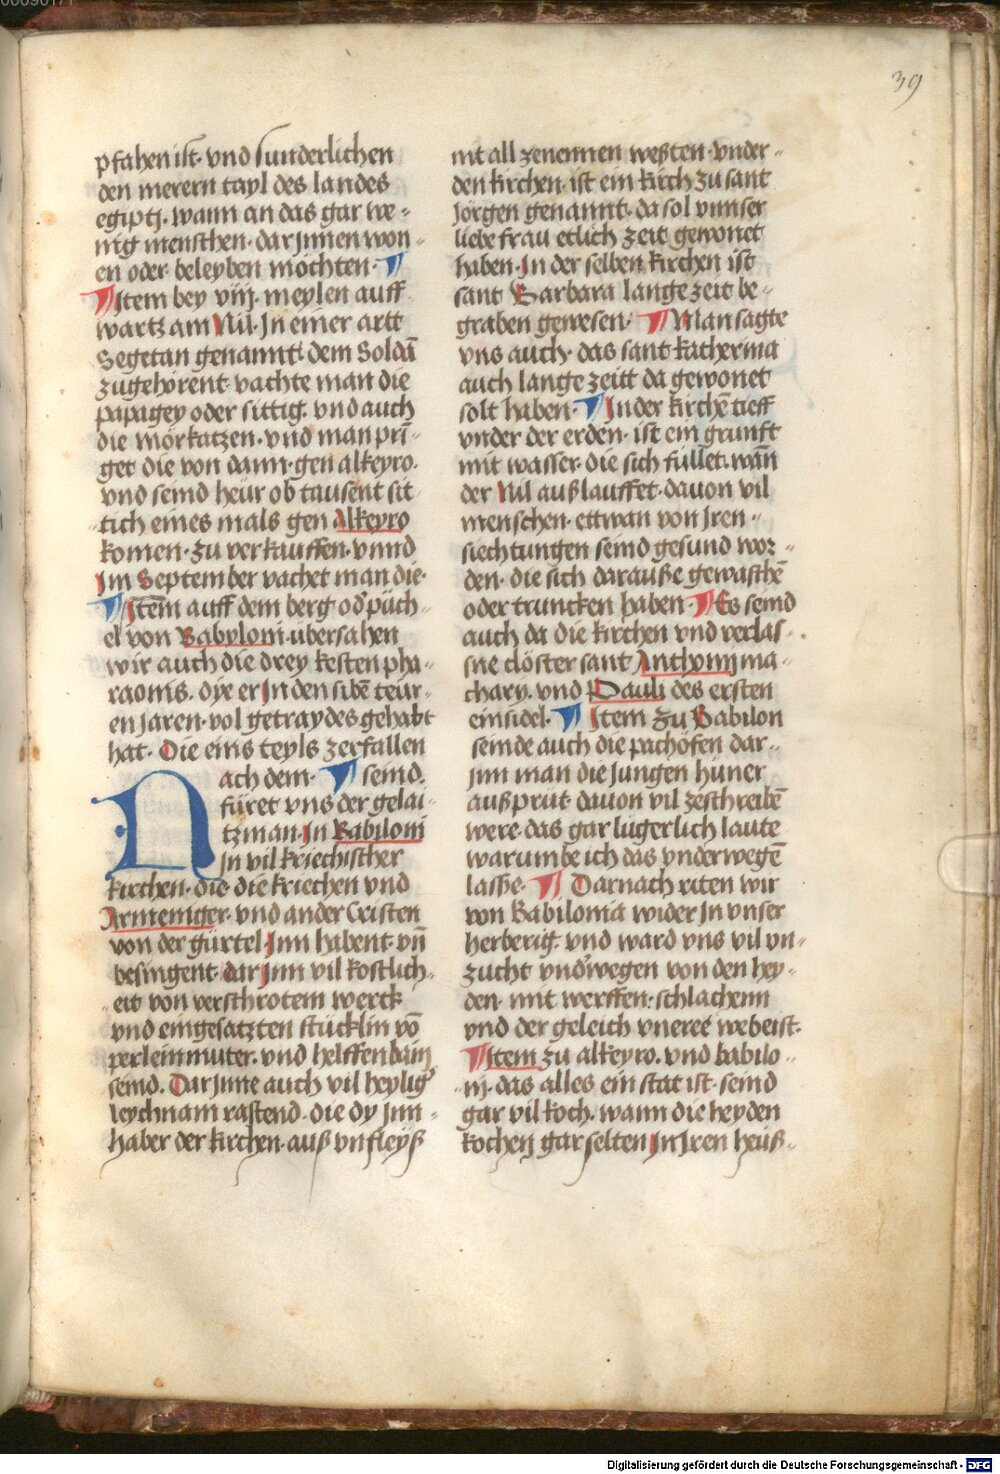 39
pfahen ist· vnd sunderlichen
den merern tayl des landes
egiptj. wann an das gar we-
nig menschen· dar jnnen won-
en oder beleyben möchten· ¶
¶ Item bey viij. meylen auff
wartz am Nil· In einer artt
Segetan genannt· dem Soldā
zugehörent· vachte man die
papagey oder sittig. vnd auch
die mörkatzen· vnd man prī-
get die von dann· gen alkeyro.
vnd seind heür ob tausent sit
tich eines mals gen Alkeyro
komen· zu verkauffen· vnnd
Im September vachet man die·
¶ Itēm auff dem berg od' püch-
el von Babyloni· übersahen
wir auch die drey kesten pha-
raonis. dye er In den sibē teür-
en jaren· vol getraydes gehabt
hat· Die eins teyls zerfallen
¶ seind.
Nach dem·
füret vns der gelai-
tzman· In Babiloni
In vil kriechischer
kirchen· die· die kriechen vnd
Armeniger· vnd ander Cristen
von der gürtel Jnn habent· vn̄
besingent· dar Jnn vil kostlich-
eit von verschrotem werck
vnd eingesatzten stücklin vō
perleinmuter· vnd helffenbain
seind. Dar jnne auch vil heylig'
leychnam rastend· die dy jnn-
haber der kirchen· auß vnfleyß
nit all zenennen weßten· vnder-
den kirchen· ist ein kirch zu sant
Jörgen genannt· da sol vnnser
liebe frau etlich zeit gewonet
haben· In der selben kirchen ist
sant Barbara lange zeit be-
graben gewesen· ¶ Man sagte
vns auch· das sant katherina
auch lange zeitt da gewonet
solt haben· ¶ In der kirchē tieff
vnder der erden· ist ein grunft
mit wasser· die sich füllet· wān
der Nil außlauffet· dauon vil
menschen· ettwan von Iren-
siechtungen seind gesund wor-
den· die sich darauße gewaschē
oder truncken haben· ¶ Es seind
auch da die kirchen vnd verlas-
sne clöster sant Anthonij ma-
charij. vnd Pauli des ersten
einsidel· ¶ Item zu Babilon
seinde auch die pachöfen dar-
jnn man die jungen hüner
außprüt· dauon vil zeschreibē
were· das gar lugerlich laute
warumbe ich das vnderwegē
lasse. ¶ Darnach riten wir
von Babilonia wider In vnser
herberig· vnd ward vns vil vn-
zucht vnd'wegen von den hey-
den· mit werffen· schlachenn
vnd der geleich vneree webeist.
¶ Item zu alkeyro. vnd babilo-
nj· das alles ein stat ist· seind
gar vil koch. wann die heyden
kochen gar selten In Iren heüß-
Digitalisierung gefördert durch die Deutsche Forschungsgemeinschaft - DFG